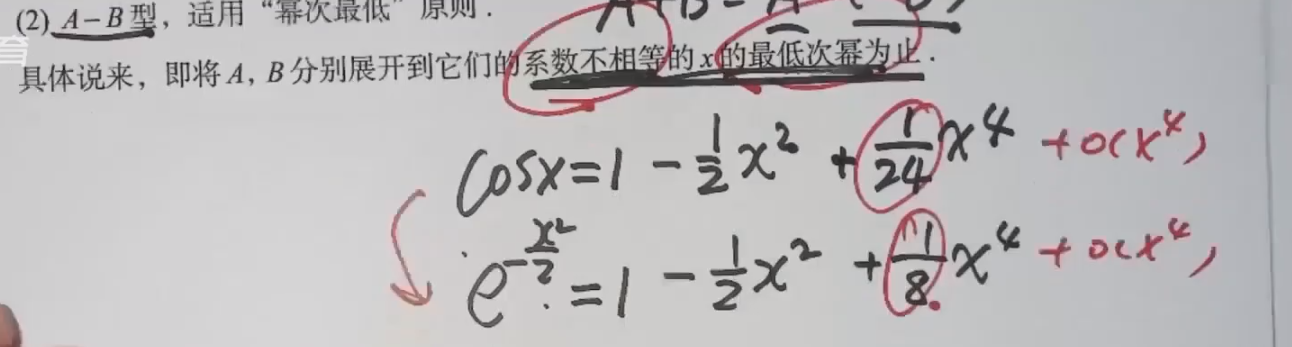 (2) A-B型，适用“幂次最低”原则．
具体说来，即将A，B分别展开到它们的系数不相等的x的最低次幂为止．
cosx=1-\frac{1}{2}x^2+\frac{1}{24}x^4+o(x^4)
e^{-\frac{x^2}{2}}=1-\frac{1}{2}x^2+\frac{1}{8}x^4+o(x^4)